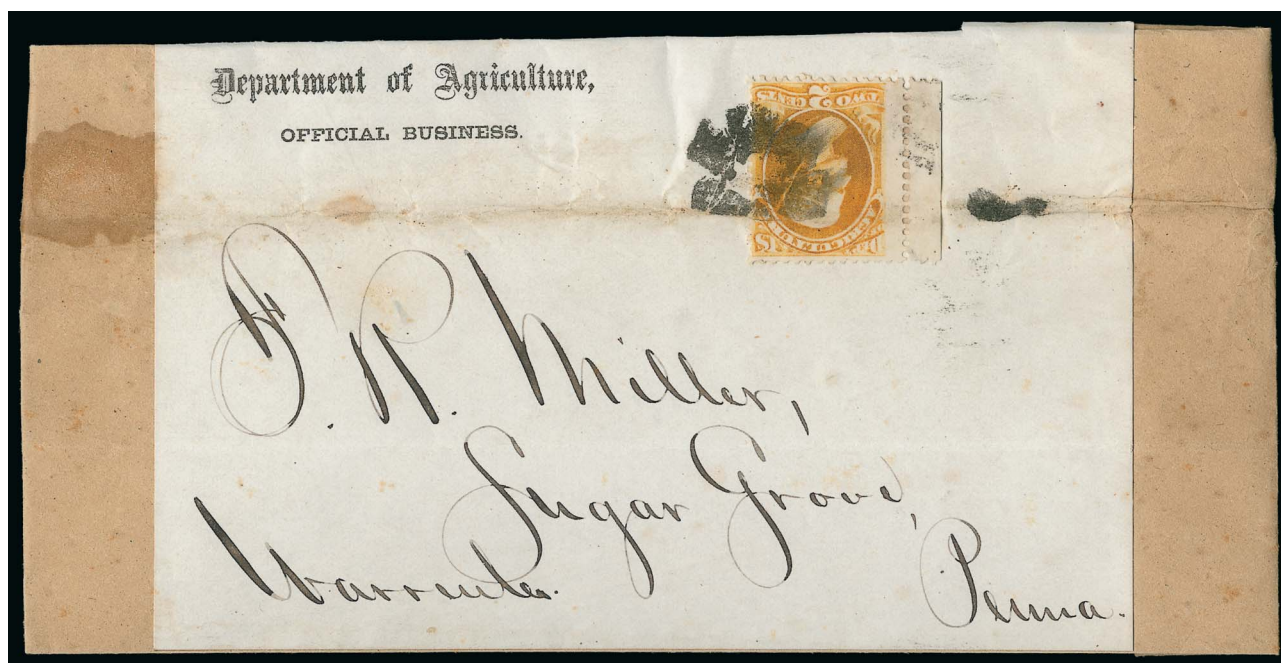 Department of Agriculture,
OFFICIAL BUSINESS.
TWO 2 CENTS
F. K. Miller,
Sugar Grove,
Warren Co.
Penna.